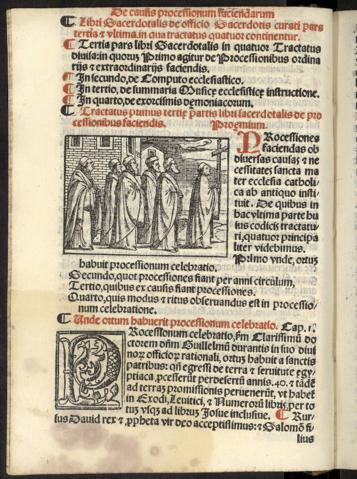 De causis processionum faciendarum
Libri Sacerdotalis de officio Sacerdotis curati pars
tertia & vltima, in qua tractatus quatuor continentur.
Tertia pars libri Sacerdotalis in quatuor Tractatus
diuisa: in quorũ Primo agitur de Processionibus ordina
rijs & extraordinarijs faciendis.
In secundo, de Computo ecclesiastico.
In tertio, de summaria Musicę ecclesiasticę instructione.
In quarto, de exorcismis dęmoniacorum.
Tractatus primus tertię partis libri sacerdotalis de pro
cessionibus faciendis. Proęmium.
PRocessiones
faciendas ob
diuersas causas & ne
cessitates sancta ma
ter ecclesia catholi-
ca ab antiquo insti-
tuit. De quibus in
hac vltima parte hu
ius codicis tractatu-
ri, quatuor principa
liter videbimus.
Primo vnde, ortuʒ
habuit processionum celebratio.
Secundo, quot processiones fiant per anni circulum,
Tertio, quibus ex causis fiant processiones,
Quarto, quis modus & ritus obseruandus est in processio-
num celebratione.
Unde ortum habuerit processionum celebratio. Cap. i.
PRocessionum celebratio, sm Clarissimũ do
ctorem dñm Guilielmũ durantis in suo diui
norũ officiorũ rationali, ortuʒ habuit a sanctis
patribus: qñ egressi de terra & seruitute egy-
ptiaca, pcesserũt per desertũ annis. 40. & tãdẽ
ad terraʒ promissionis peruenerũt, vt habeť
in Exodi, Leuitici, & Numerorũ libris, per to
tum vsqʒ ad librum Josue inclusiue. Rur-
sus Dauid rex & ppheta vir deo acceptissimus: & Salomõ fi
lius